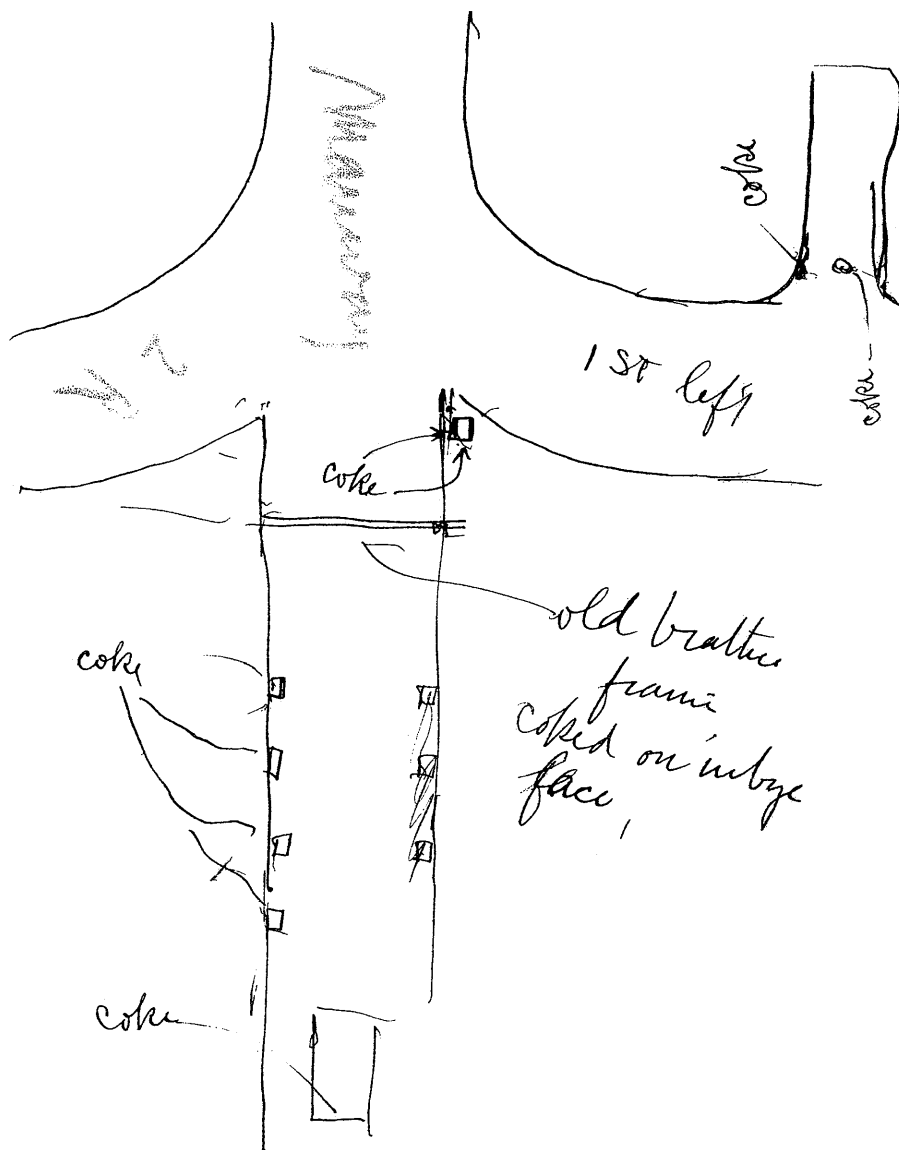 coke
1 St left
coke
coke
old brattice
frame
coked on inbye
face,
coke
coke